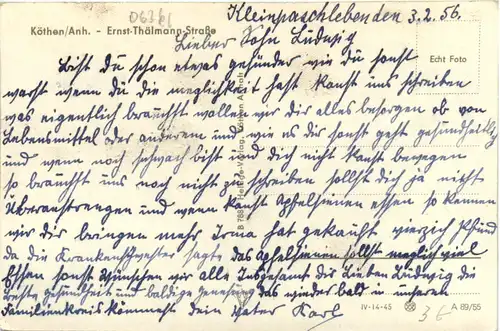 0636
Kleinpaschleben den 3.2.56.
Köthen/Anh. - Ernst-Thälmann-Straße
Lieber Sohn Ludwig
Echt Foto
Bist du schon etwas gesünder wie du sonst
warst wenn du die meglichkeit hast kanst uns schreiben
was eigentlich brauchst wollen wir dir alles besorgen ob von
Lebensmittel oder anderem und wie es dir sonst geht gesundheitlich
und wenn noch schwach bist und dich nicht kanst bewegen
so brauchst uns noch nicht zu schreiben sollst dich ja nicht
überanstrengen und wenn kanst Apfelsienen essen so kennen
wir dir bringen mehr Irma hat gekauft vierzich Pfund
da die Krankenschwester sagte das Apfelsienen sollst meglich viel
Essen sonst Wünschen wir alle Insgesamt dir Lieben Ludwig die
beste gesundheit und baldige Genesung das wieder bald in unseren
Familienkreis kommst dein Vater Karl
IV-14-45
A 89/55